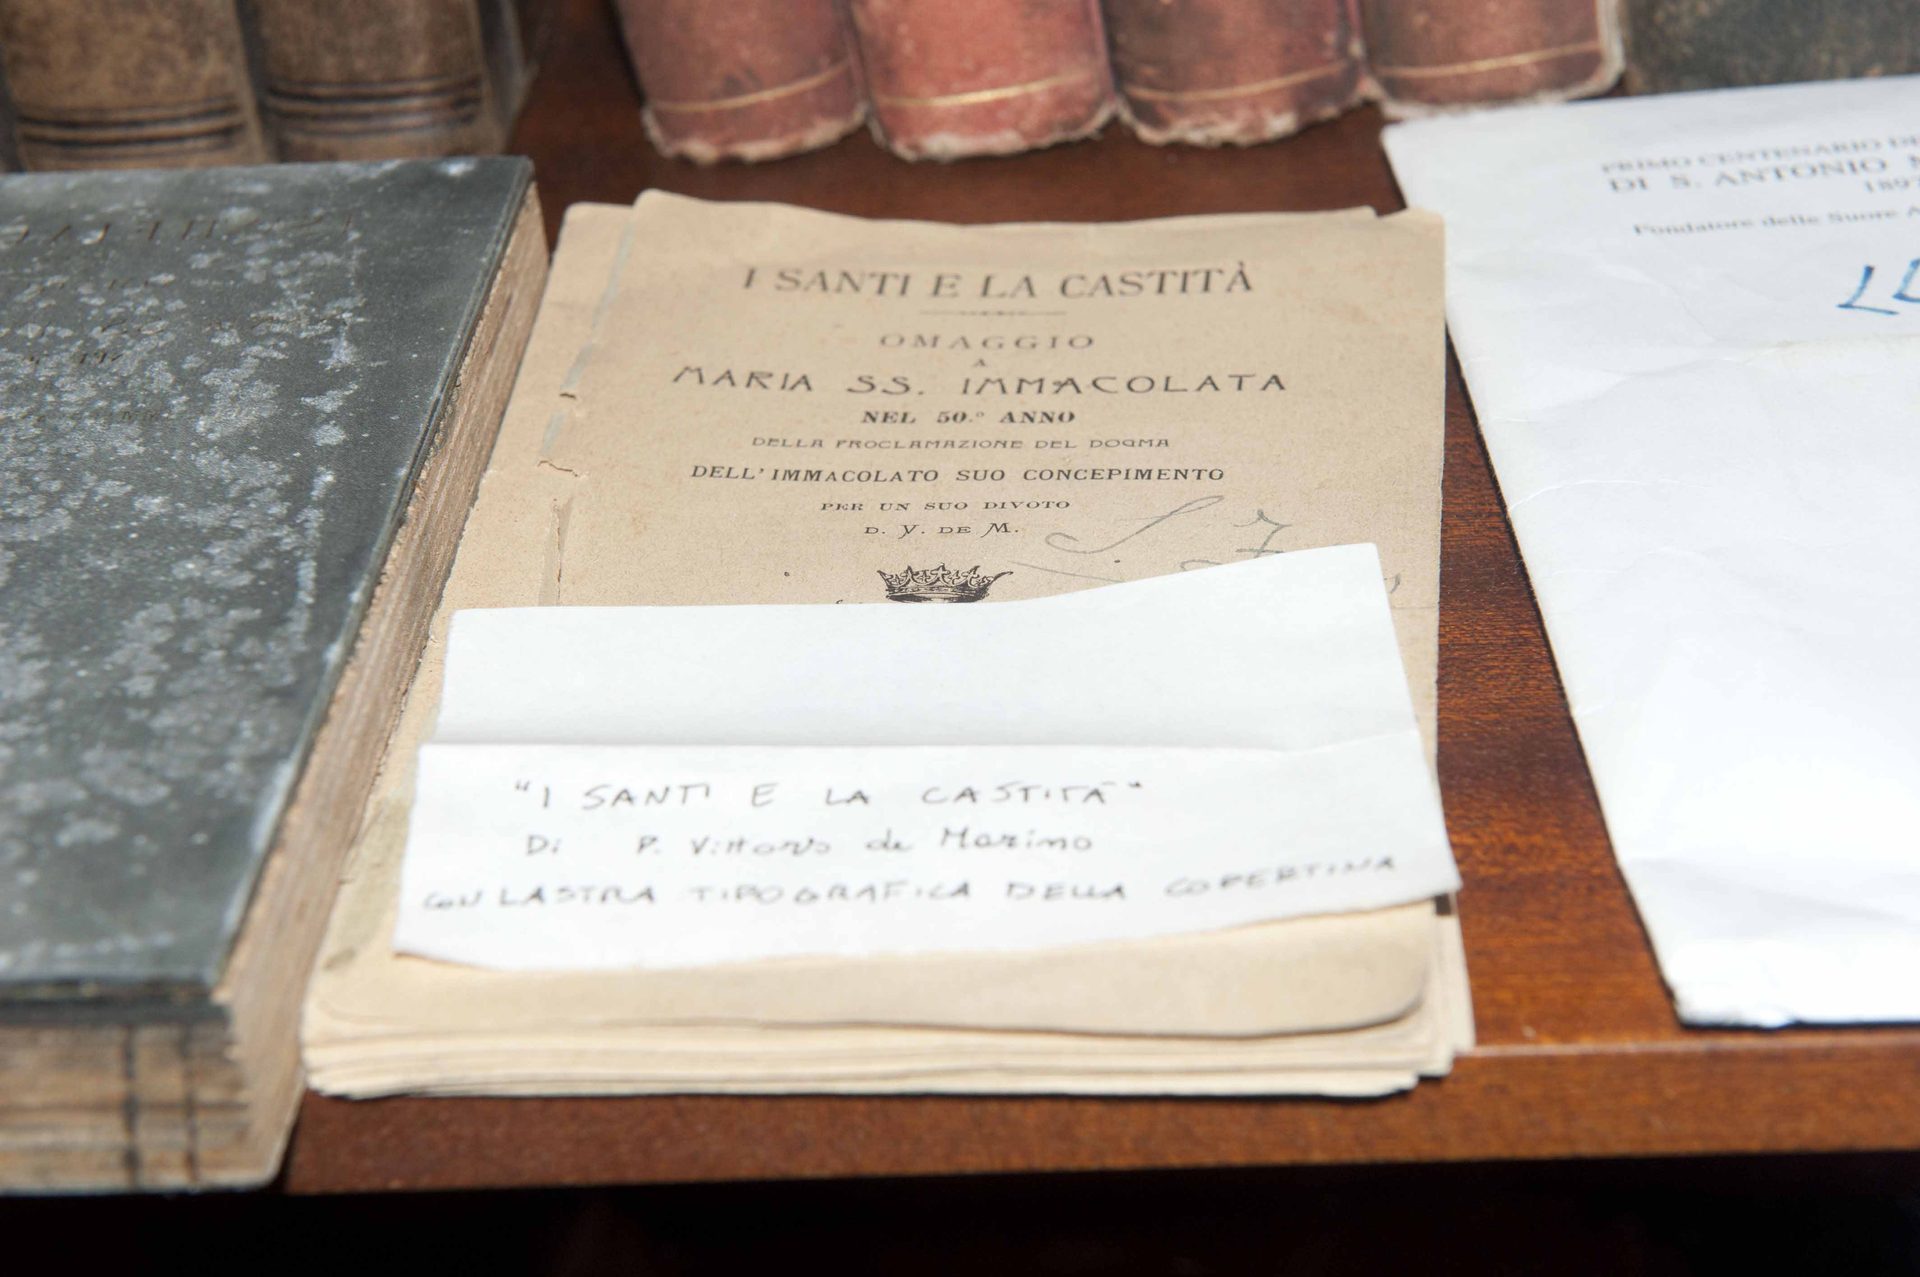 I SANTI E LA CASTITÀ
OMAGGIO
A
MARIA SS. IMMACOLATA
NEL 50.º ANNO
DELLA PROCLAMAZIONE DEL DOGMA
DELL'IMMACOLATO SUO CONCEPIMENTO
PER UN SUO DIVOTO
D. V. DE M.
"I SANTI E LA CASTITÀ"
DI P. Vittorio de Marino
CON LASTRA TIPOGRAFICA DELLA COPERTINA
PRIMO CENTENARIO
DI S. ANTONIO
Fondatore delle Suore